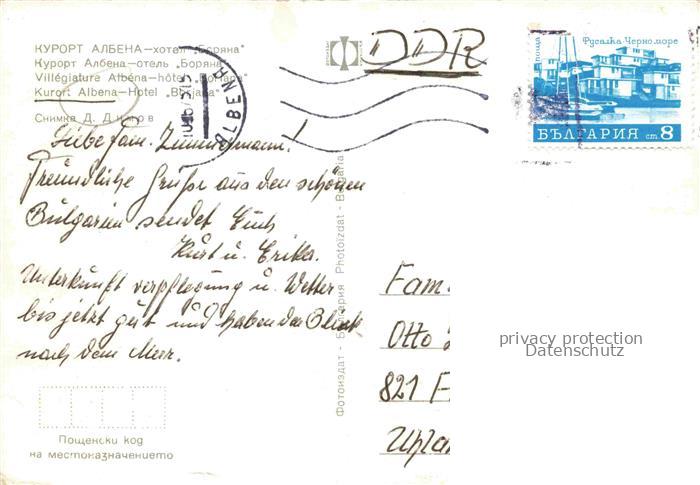 КУРОРТ АЛБЕНА—хотел „Боряна"
Курорт Албена—отель „Боряна"
Villégiature Albéna—hôtel „Boriana"
Kurort Albena—Hotel „Borjana"
Снимка Д.
"DDR"
ALBENA
поща
Русалка-Черноморе
БЪЛГАРИЯ ст 8
Liebe Fam. Zimmermann!
Freundliche Grüße aus den schönen
Bulgarien sendet Euch
Kurt u. Erika.
Unterkunft verpflegung u. Wetter
bis jetzt gut und haben den Blick
nach dem Meer.
Фотоиздат - България Photoizdat - Bulgaria
Fam.
Otto
821 F
privacy protection
Datenschutz
Пощенски код
на местоназначението